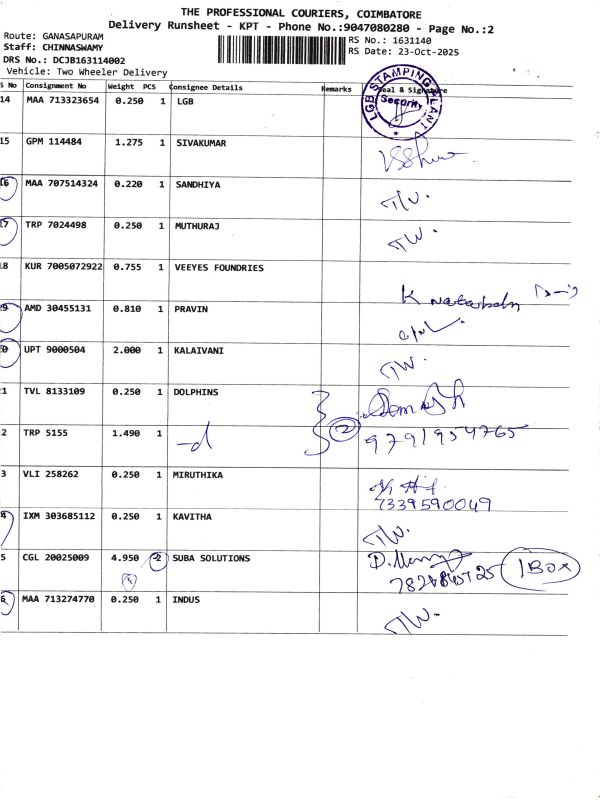 THE PROFESSIONAL COURIERS, COIMBATORE
Delivery Runsheet - KPT - Phone No.:9047080280 - Page No.:2
Route: GANASAPURAM
RS No.: 1631140
Staff: CHINNASWAMY
RS Date: 23-Oct-2025
DRS No.: DCJB163114002
Vehicle: Two Wheeler Delivery
S No Consignment No Weight PCS Consignee Details Remarks Seal & Signature
14 MAA 713323654 0.250 1 LGB
LGB STAMPING PLANT
Security
15 GPM 114484 1.275 1 SIVAKUMAR
16 MAA 707514324 0.220 1 SANDHIYA T/W.
17 TRP 7024498 0.250 1 MUTHURAJ T/W.
18 KUR 7005072922 0.755 1 VEEYES FOUNDRIES
9 AMD 30455131 0.810 1 PRAVIN
0 UPT 9000504 2.000 1 KALAIVANI T/W.
1 TVL 8133109 0.250 1 DOLPHINS
2
2 TRP 5155 1.490 1 -d 9791954765
3 VLI 258262 0.250 1 MIRUTHIKA
7339590049
4 IXM 303685112 0.250 1 KAVITHA T/W.
5 CGL 20025009 4.950 2 SUBA SOLUTIONS 1 BOX
6 MAA 713274770 0.250 1 INDUS T/W.